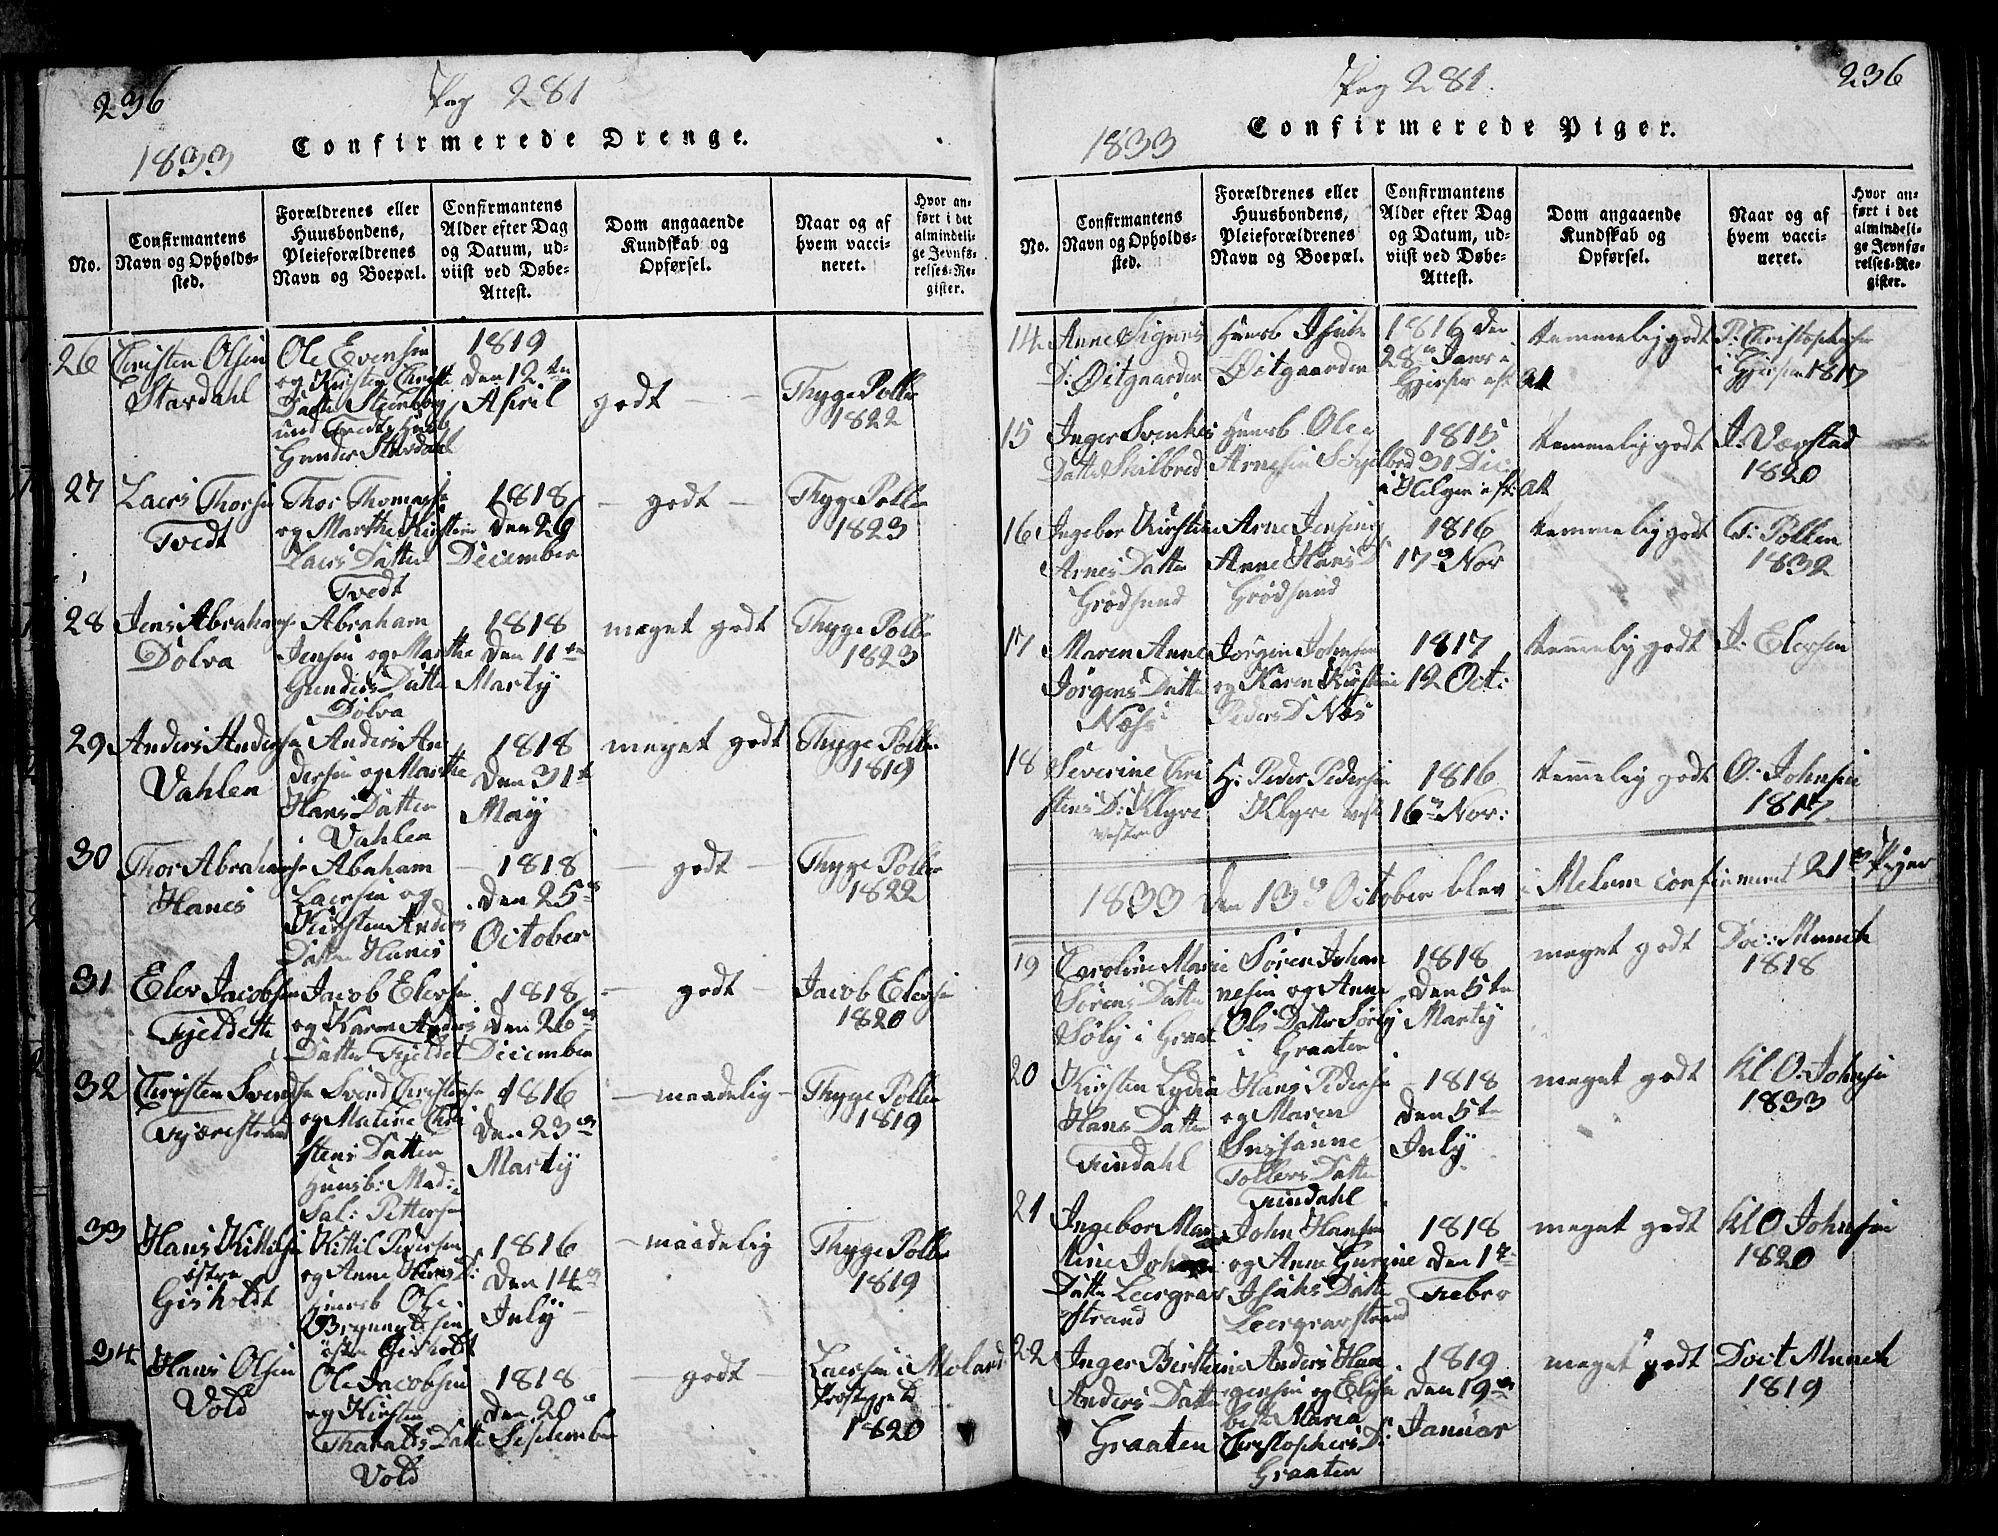 236
Pag 281
1833
Confirmerede Drenge.
No.
Confirmantens Navn og Opholds-sted.
Forældrenes eller Huusbondens, Pleieforældrenes Navn og Boepæl.
Confirmantens Alder efter Dag og Datum, ud-viist ved Døbe-Attest.
Dom angaaende Kundskab og Opførsel.
Naar og af hvem vacci-neret.
Hvor an-ført i det almindeli-ge Jevnfø-relses-Re-gister.
26
Christen Olsen
Stavdahl
Ole Evensen
og Kirsten Christe
Datter
Gunder Stavdahl
1819
den 12
April
godt
Thyge Polle
1822
27
Laers Thorsen
Tvedt
Thor Thomass
og Marthe Kirstine
Laers Datter
Tvedt
1818
den 26
December
godt
Thyge Polle
1823
28
Jens Abrahams
Dolva
Abraham
Jensen og Marthe
Gunders Datte
Dolva
1818
den 11
Martij
meget godt
Thyge Polle
1823
29
Anders Anders
Vahlen
Anders An
dersen og Marthe
Hans Datter
Vahlen
1818
den 31
Maij
meget godt
Thyge Polle
1819
30
Thor Abrahams
Hanes
Abaham
Laersen og
Kirsten Anders
Datter Hanes
1818
den 25
October
godt
Thyge Polle
1822
31
Elev Jacobsen
Fjeldet
Jacob Elevsen
og Karen Anders
Datter Fjeldet
1818
den 26
December
godt
Jacob Elevsen
1820
32
Christen Svends
Fjærestrand
Svend Christens
og Maline Chri
stens Datter
Huusb: Mad:
Sal: Pettersen
1816
den 23
Martij
maadelig
Thyge Polle
1819
33
Hans Kittilsen
østre
Gisholdt
Kittil Pedersen
og Anne Hans D:
Huusb Ole
Brynnildsen
østre Gisholdt
1816
den 14
July
maadelig
Thyge Polle
1819
34
Hans Olsen
Vold
Ole Jacobsen
og Kirsten
Tharalds Datte
Vold
1818
den 20
September
godt
Laersen i Moland
Præstegield
1820
Pag 281.
236
1833
Confirmerede Piger.
No.
Confirmantens Navn og Opholds-sted.
Forældrenes eller Huusbondens, Pleieforældrenes Navn og Boepæl.
Confirmantens Alder efter Dag og Datum, ud-viist ved Døbe-Attest.
Dom angaaende Kundskab og Opførsel.
Naar og af hvem vacci-neret.
Hvor an-ført i det almindeli-ge Jevnfø-relses-Re-gister.
14
Anne Signes
D: Øitgaarden
Huusb
Øitgaarden
1816 den
28 Janr i
Gjersen
temmelig godt
P: Christophersen
i Gjersen 1817
15
Inger
Datter
Huusb Ole
Arnesen
1815
31 Dec:
temmelig godt
J: Værstad
1820
16
Ingebor Kirstine
Arnes Datter
Grødsund
Arne Jensen og
Anne Hans D
Grødsund
1816
17 Nov
temmelig godt
T: Pollen
1832
17
Maren Anne
Jørgens Datte
Næss
Jørgen Johnsen
og Karen Kirstine
Peders D Næs
1817
12 Oct:
temmelig godt
J: Elevsen
18
Severine Chri
stens D: Klyve
vestre
H: Peder Pedersen
Klyve vest
1816
16 Nov:
temmelig godt
O: Johnsen
1817.
1833 den 13 October blev i Melum confirmeret 21 Piger
19
Caroline Marie
Sørens Datte
i Graat
Søren Johan
nesen og Anne
Ols Datter Sørby
i Graaten
1818
den 5te
Martij
meget godt
Doc: Munch
1818
20
Kirsten Lydia
Hans Datter
Findahl
Hans Pedersen
og Maren
Susanne
Tollevs Datte
Findahl
1818
den 5te
July
meget godt
Kl O: Johnsen
1833
21
Ingebor Mar
Datte Leergrav
strand
John Hansen
og Anne Gurine
Isachs Datte
Leergravstrand
1818
den 1te
Febr
meget godt
Kl O Johnsen
1820
22
Inger Birstine
Anders Datte
Graaten
Anders Haa
gensen og Elisa
beth Maria
Christophers D:
Graaten
1819
den 19
Januar
meget godt
Doct Munch
1819